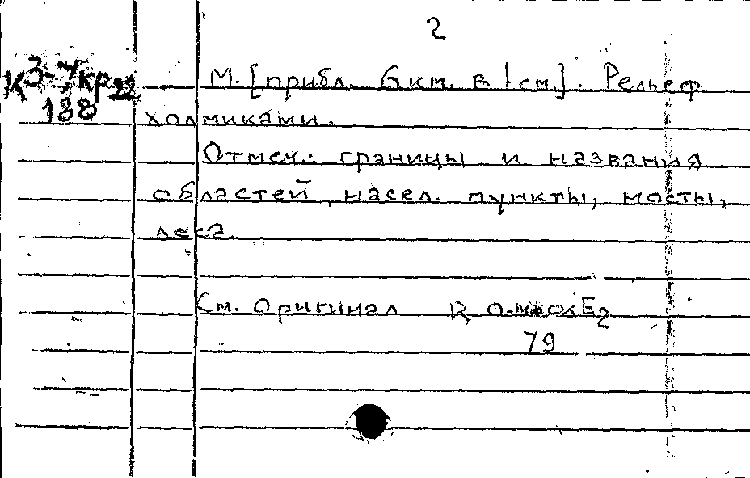 2
К 3-7кр 22
188
М. [прибл. 6 км. в 1 см.]. Рельеф
холмиками.
Отмеч.: границы и названия
областей, насел. пункты, мосты,
леса.
См. оригинал
79